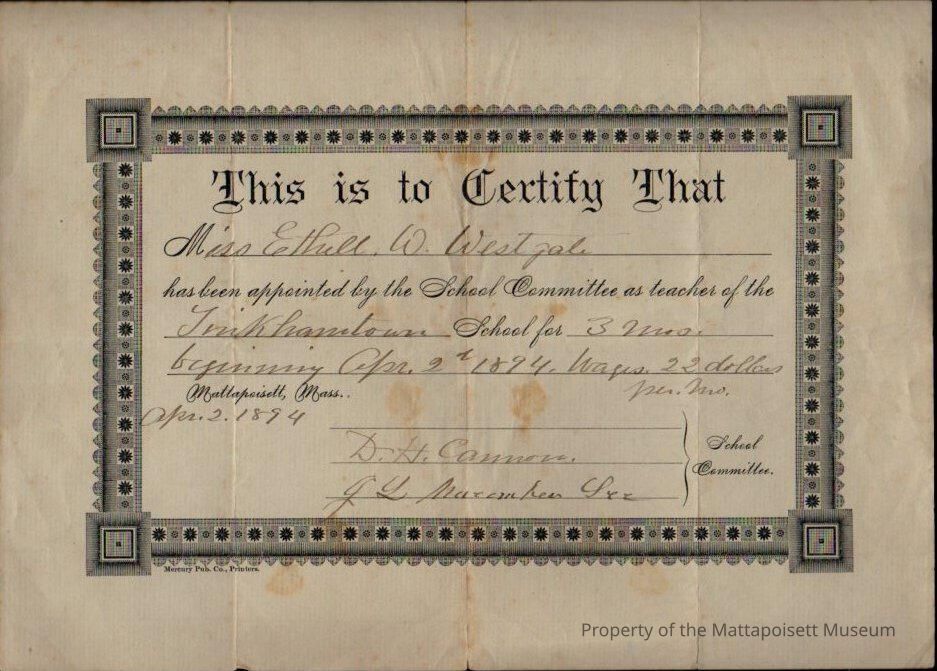 This is to Certify That
Miss Ethell. W. Westgate
has been appointed by the School Committee as teacher of the
Tinkhamtown School for 3 mos.
beginning Apr. 2d 1894. Wages. 22 dollars
per. mo.
Mattapoisett, Mass..
Apr. 2. 1894
D. H. Cannon.
School
Committee.
J L
Mercury Pub. Co., Printers.
Property of the Mattapoisett Museum